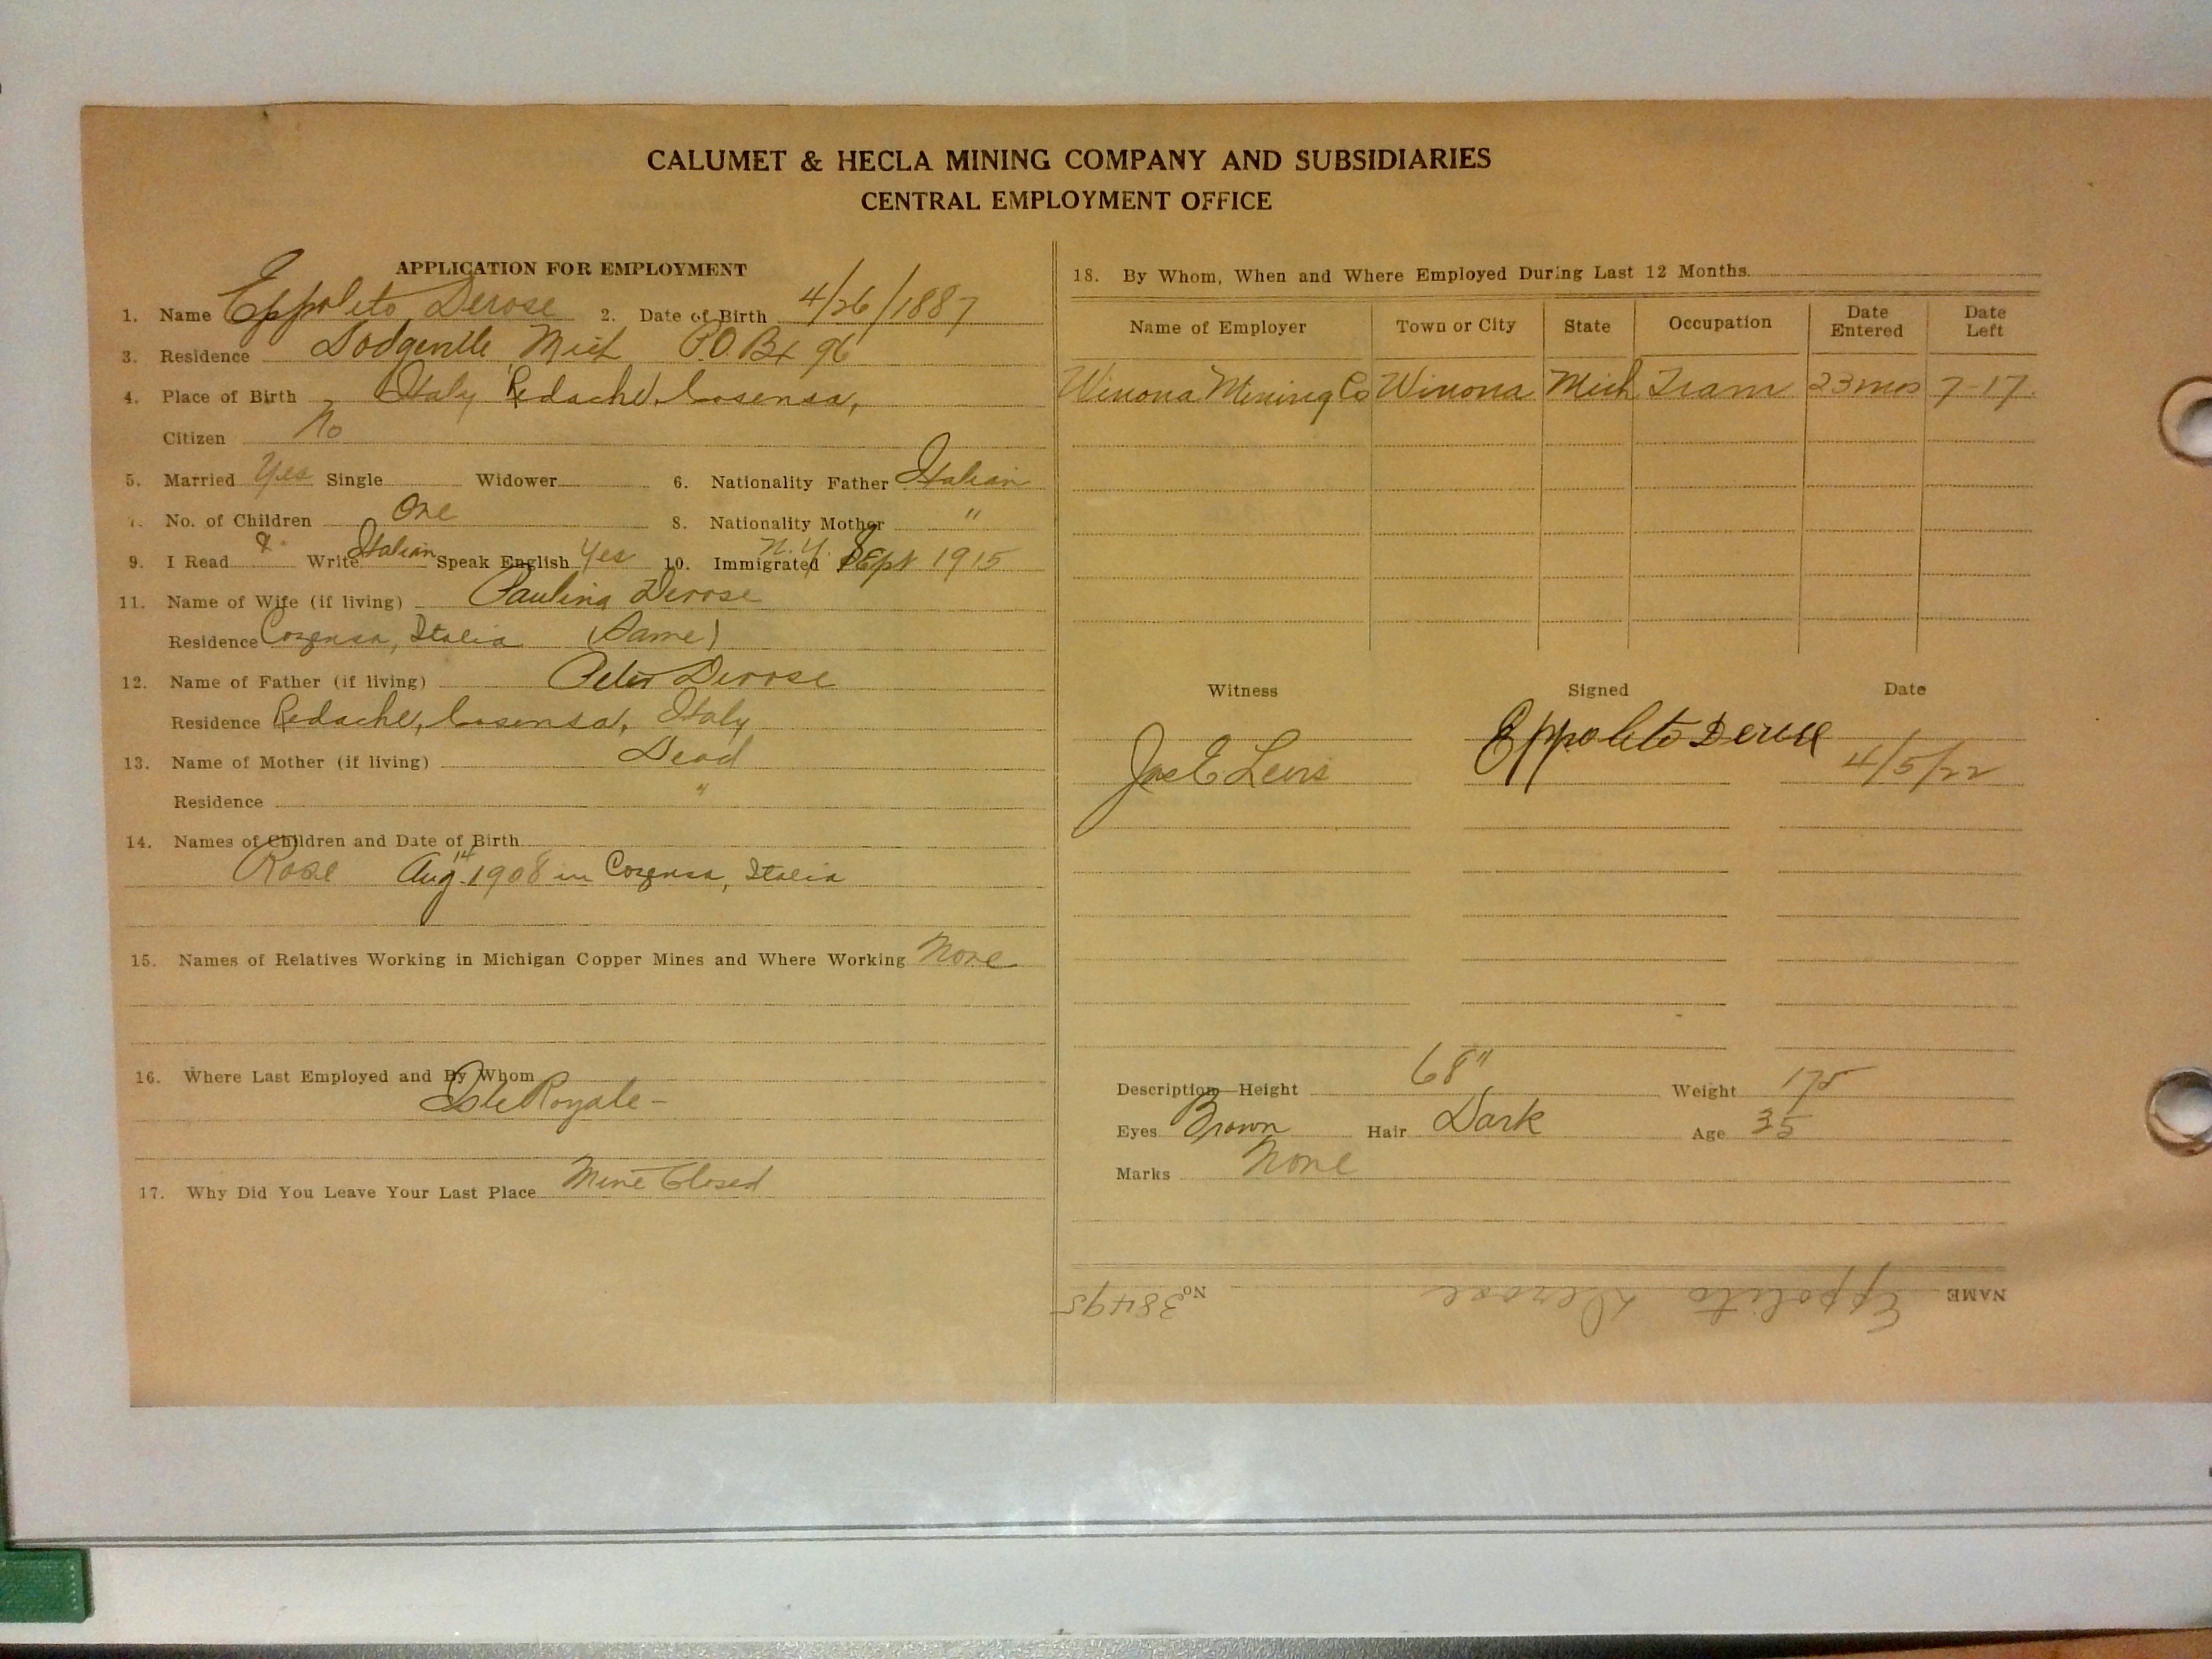 CALUMET & HECLA MINING COMPANY AND SUBSIDIARIES
CENTRAL EMPLOYMENT OFFICE
APPLICATION FOR EMPLOYMENT
1. Name Eppolito Derose 2. Date of Birth 4/26/1887
3. Residence Dodgeville Mich P.O. Bx 96
4. Place of Birth Italy Redache, Cosensa,
Citizen No
5. Married Yes Single Widower 6. Nationality Father Italian
7. No. of Children One 8. Nationality Mother "
9. I Read & Write Italian Speak English Yes 10. Immigrated N.Y. Sept 1915
11. Name of Wife (if living) Paulina Derose
Residence Cozensa, Italia (Same)
12. Name of Father (if living) Peter Derose
Residence Redache, Cosensa, Italy
13. Name of Mother (if living) Dead
Residence "
14. Names of Children and Date of Birth
Rose Aug. 14 1908 in Cozensa, Italia
15. Names of Relatives Working in Michigan Copper Mines and Where Working None
16. Where Last Employed and By Whom
Isle Royale -
17. Why Did You Leave Your Last Place Mine Closed
18. By Whom, When and Where Employed During Last 12 Months
Name of Employer Town or City State Occupation Date Entered Date Left
Winona Mining Co Winona Mich Tram 23 mos 7-17.
Witness Signed Date
Eppolito Derose
Jas E Lewis 4/5/22
Description—Height 68" Weight 175
Eyes Brown Hair Dark Age 35
Marks None
NAME Eppolito Derose No. 38495